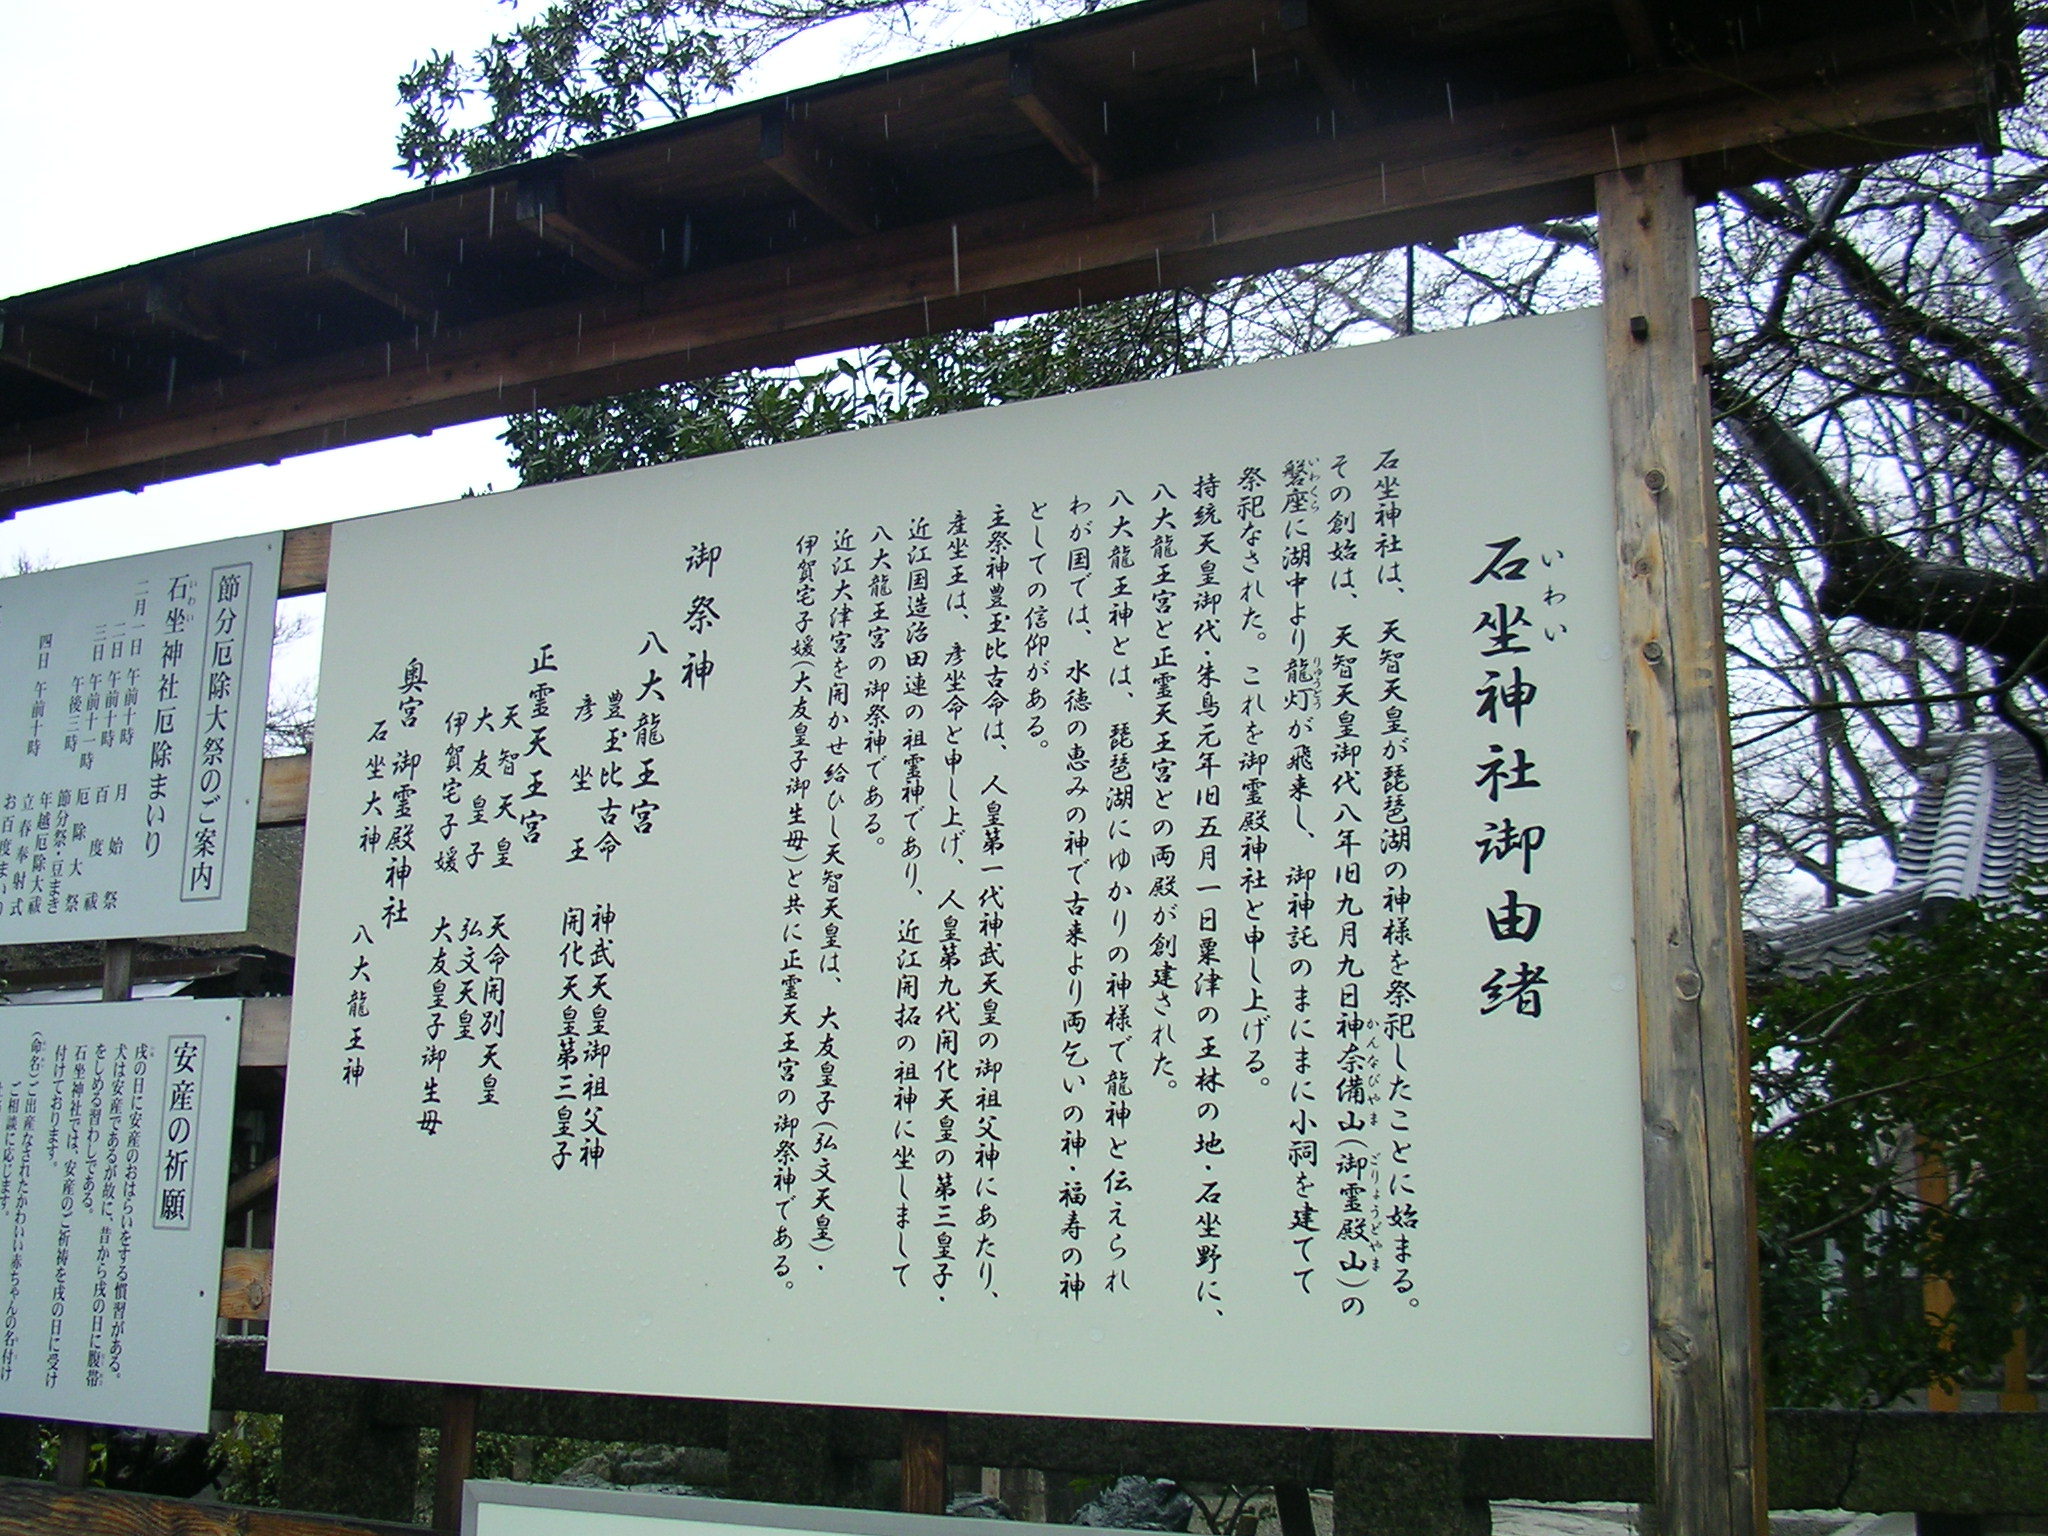 石坐神社御由緒
いわい
石坐神社は、天智天皇が琵琶湖の神様を祭祀したことに始まる。
その創始は、天智天皇御代八年旧九月九日神奈備山(御霊殿山)の
かんなびやま ごりょうどやま
磐座に湖中より龍灯が飛来し、御神託のまにまに小祠を建てて
いわくら りゅうとう
祭祀なされた。これを御霊殿神社と申し上げる。
持統天皇御代・朱鳥元年旧五月一日粟津の王林の地・石坐野に、
八大龍王宮と正霊天王宮との両殿が創建された。
八大龍王神とは、琵琶湖にゆかりの神様で龍神と伝えられ
わが国では、水徳の恵みの神で古来より雨乞いの神・福寿の神
としての信仰がある。
主祭神豊玉比古命は、人皇第一代神武天皇の御祖父神にあたり、
彦坐王は、彦坐命と申し上げ、人皇第九代開化天皇の第三皇子・
近江国造治田連の祖霊神であり、近江開拓の祖神に坐しまして
八大龍王宮の御祭神である。
近江大津宮を開かせ給ひし天智天皇は、大友皇子(弘文天皇)・
伊賀宅子媛(大友皇子御生母)と共に正霊天王宮の御祭神である。
御祭神
八大龍王宮
豊玉比古命 神武天皇御祖父神
彦坐王 開化天皇第三皇子
正霊天王宮
天智天皇 天命開別天皇
大友皇子 弘文天皇
伊賀宅子媛 大友皇子御生母
奥宮 御霊殿神社
石坐大神 八大龍王神
節分厄除大祭のご案内
石坐神社厄除まいり
いわい
二月一日 午前十時 月始祭
二日 午前十時 百度祓
三日 午前十一時 厄除大祭
午後三時 節分祭・豆まき
年越厄除大祓
四日 午前十時 立春奉射式
お百度まいり
安産の祈願
戌の日に安産のおはらいをする慣習がある。
犬は安産であるが故に、昔から戌の日に腹帯
をしめる習わしである。
石坐神社では、安産のご祈祷を戌の日に受け
付けております。
(命名)ご出産なされたかわいい赤ちゃんの名付け
ご相談に応じます。